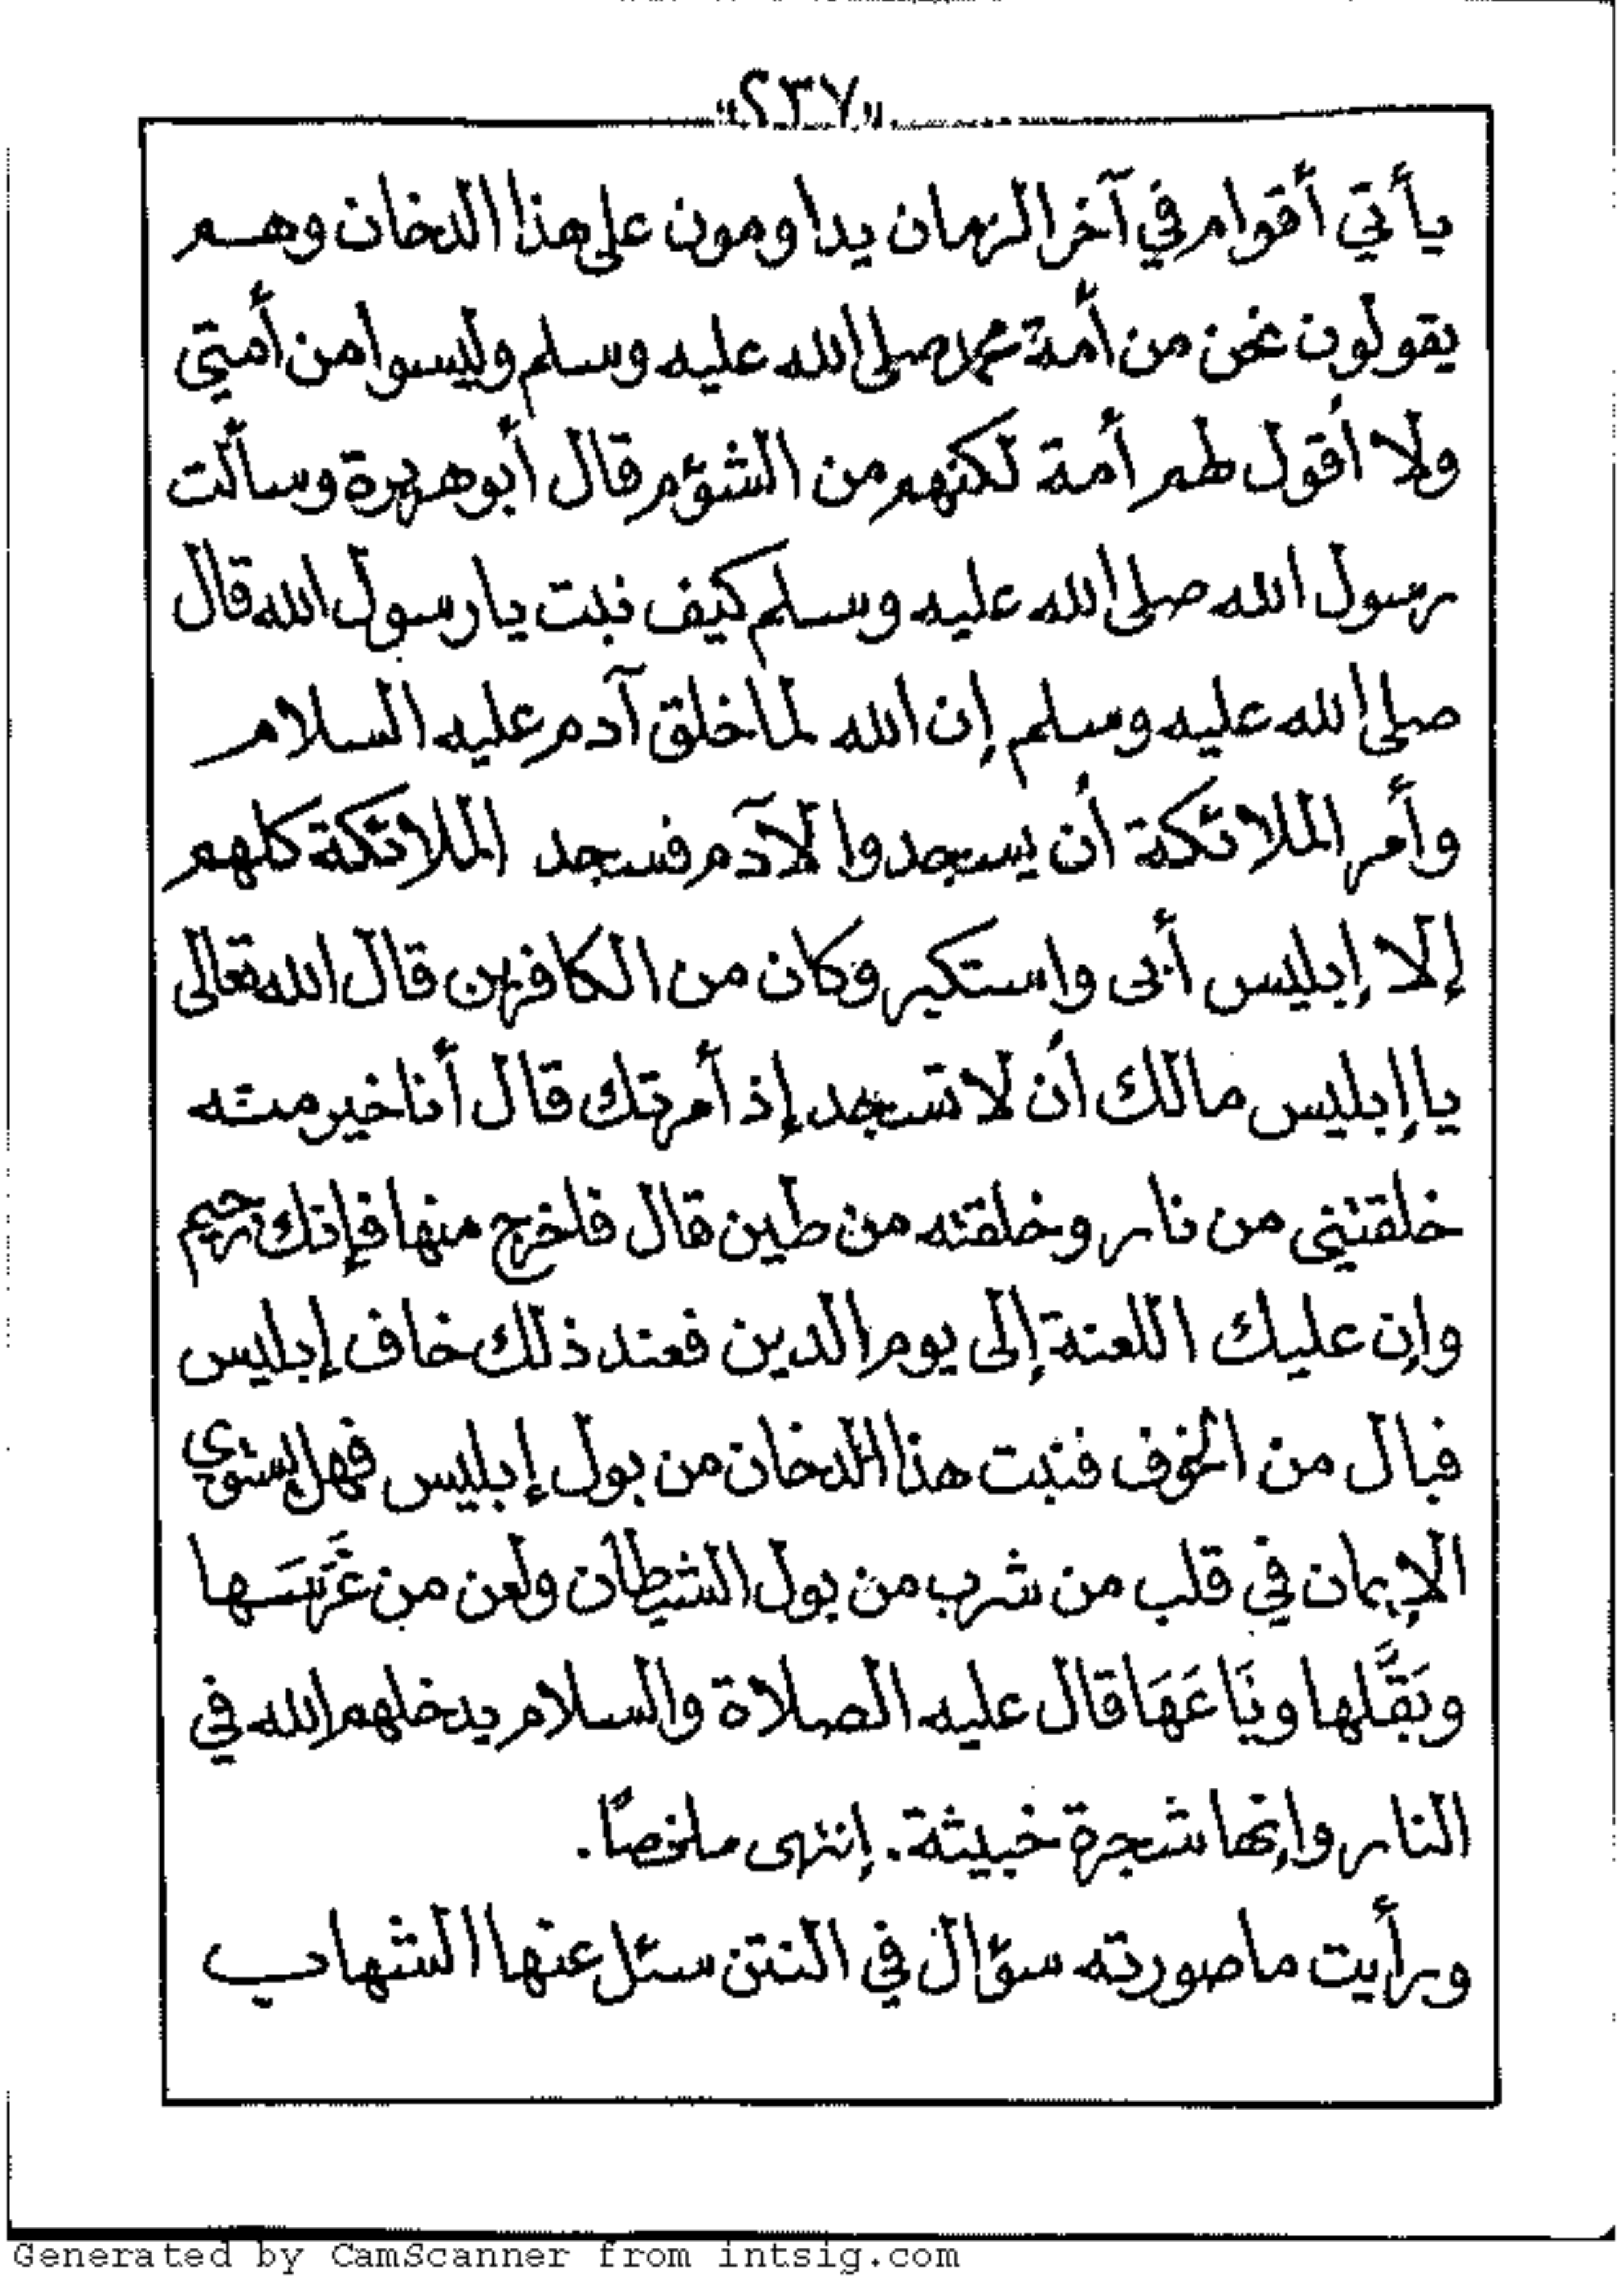 «٢٣٧»
يأتي أقوام في آخر الزمان يداومون على هذا الدخان وهم
يقولون نحن من أمة محمد صلى الله عليه وسلم وليسوا من أمتي
ولا أقول لهم أمة لكنهم من الشؤم قال أبو هريرة وسألت
رسول الله صلى الله عليه وسلم كيف نبت يا رسول الله قال
صلى الله عليه وسلم إن الله لما خلق آدم عليه السلام
وأمر الملائكة أن يسجدوا لآدم فسجد الملائكة كلهم
إلا إبليس أبى واستكبر وكان من الكافرين قال الله تعالى
يا إبليس مالك أن لا تسجد إذ أمرتك قال أنا خير منه
خلقتني من نار وخلقته من طين قال فاخرج منها فإنك رجيم
وإن عليك اللعنة إلى يوم الدين فعند ذلك خاف إبليس
فبال من الخوف فنبت هذا الدخان من بول إبليس فهل يستوي
الإيمان في قلب من شرب من بول الشيطان ولعن من غَرَسَها
ونَقَّلها وبَاعَهَا قال عليه الصلاة والسلام يدخلهم الله في
النار وإنها شجرة خبيثة. إنتهى ملخصًا.
ورأيت ما صورته سؤال في التتن سئل عنها الشهاب
Generated by CamScanner from intsig.com